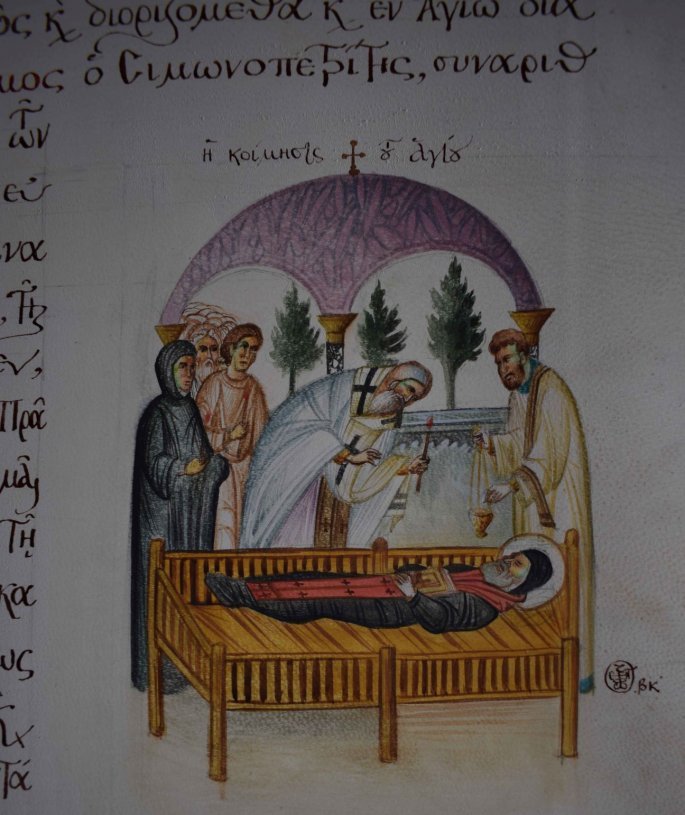 ὸς κ̀ διοριζομεθα κ̀ εν Αγιω δια
μος ὁ Σιμωνοπετρίτης, συναριθ
τῶν
εὐ
να
, τῆς
εν,
Πρα
μᾶς
τῇ
κα
ως
τά
ἡ κοίμησις τοῦ ἁγίου
βκ´